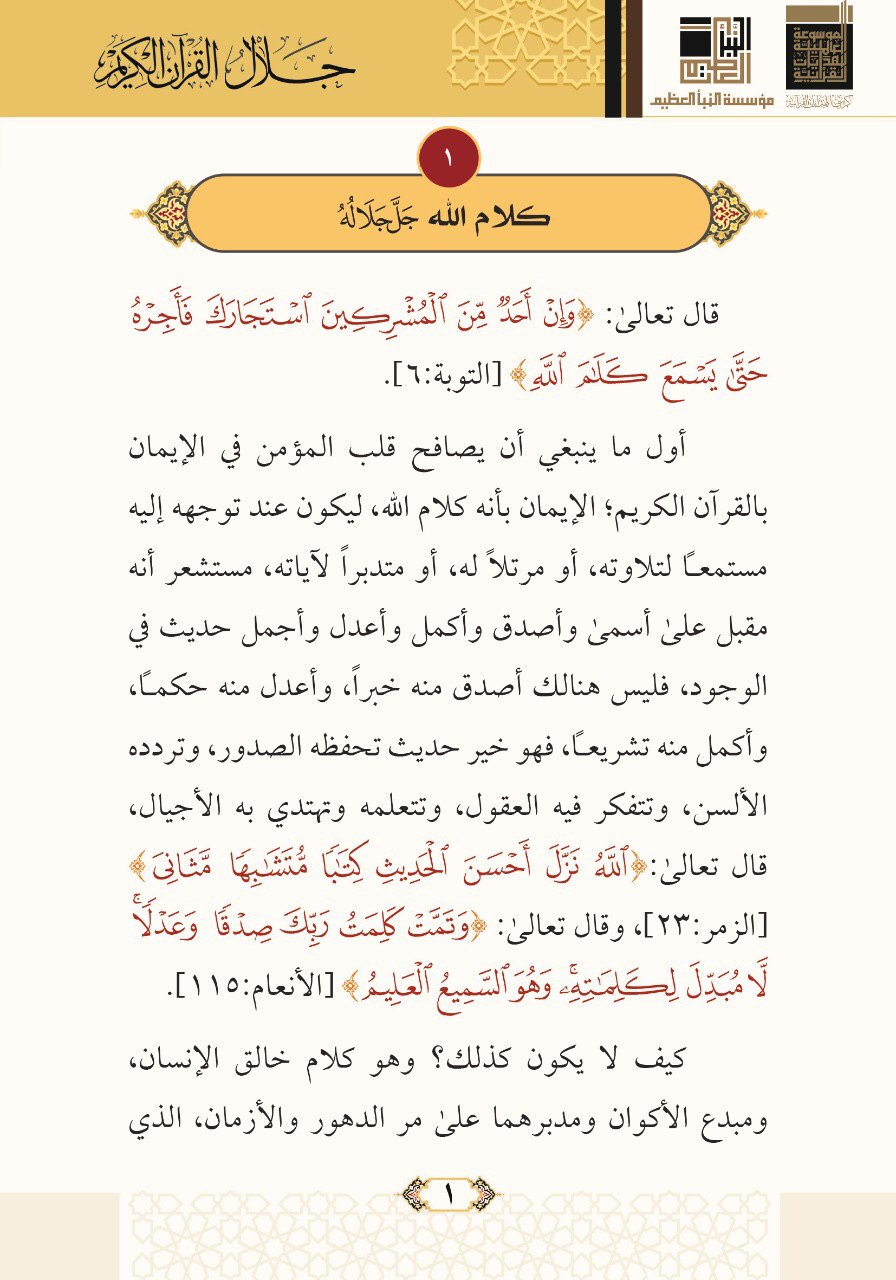 جلال القرآن الكريم
النبأ العظيم
مؤسسة النبأ العظيم
١
كلام الله جَلَّ جَلَالُهُ
قال تعالىٰ: ﴿وَإِنۡ أَحَدٞ مِّنَ ٱلۡمُشۡرِكِينَ ٱسۡتَجَارَكَ فَأَجِرۡهُ
حَتَّىٰ يَسۡمَعَ كَلَٰمَ ٱللَّهِ﴾ [التوبة:٦].
أول ما ينبغي أن يصافح قلب المؤمن في الإيمان
بالقرآن الكريم؛ الإيمان بأنه كلام الله، ليكون عند توجهه إليه
مستمعـًا لتلاوته، أو مرتلاً له، أو متدبراً لآياته، مستشعر أنه
مقبل علىٰ أسمىٰ وأصدق وأكمل وأعدل وأجمل حديث في
الوجود، فليس هنالك أصدق منه خبراً، وأعدل منه حكمـًا،
وأكمل منه تشريعـًا، فهو خير حديث تحفظه الصدور، وتردده
الألسن، وتتفكر فيه العقول، وتتعلمه وتهتدي به الأجيال،
قال تعالىٰ: ﴿ٱللَّهُ نَزَّلَ أَحۡسَنَ ٱلۡحَدِيثِ كِتَٰبٗا مُّتَشَٰبِهٗا مَّثَانِيَ﴾
[الزمر:٢٣]، وقال تعالىٰ: ﴿وَتَمَّتۡ كَلِمَتُ رَبِّكَ صِدۡقٗا وَعَدۡلٗاۚ
لَّا مُبَدِّلَ لِكَلِمَٰتِهِۦۚ وَهُوَ ٱلسَّمِيعُ ٱلۡعَلِيمُ﴾ [الأنعام:١١٥].
كيف لا يكون كذلك؟ وهو كلام خالق الإنسان،
ومبدع الأكوان ومدبرهما علىٰ مر الدهور والأزمان، الذي
١